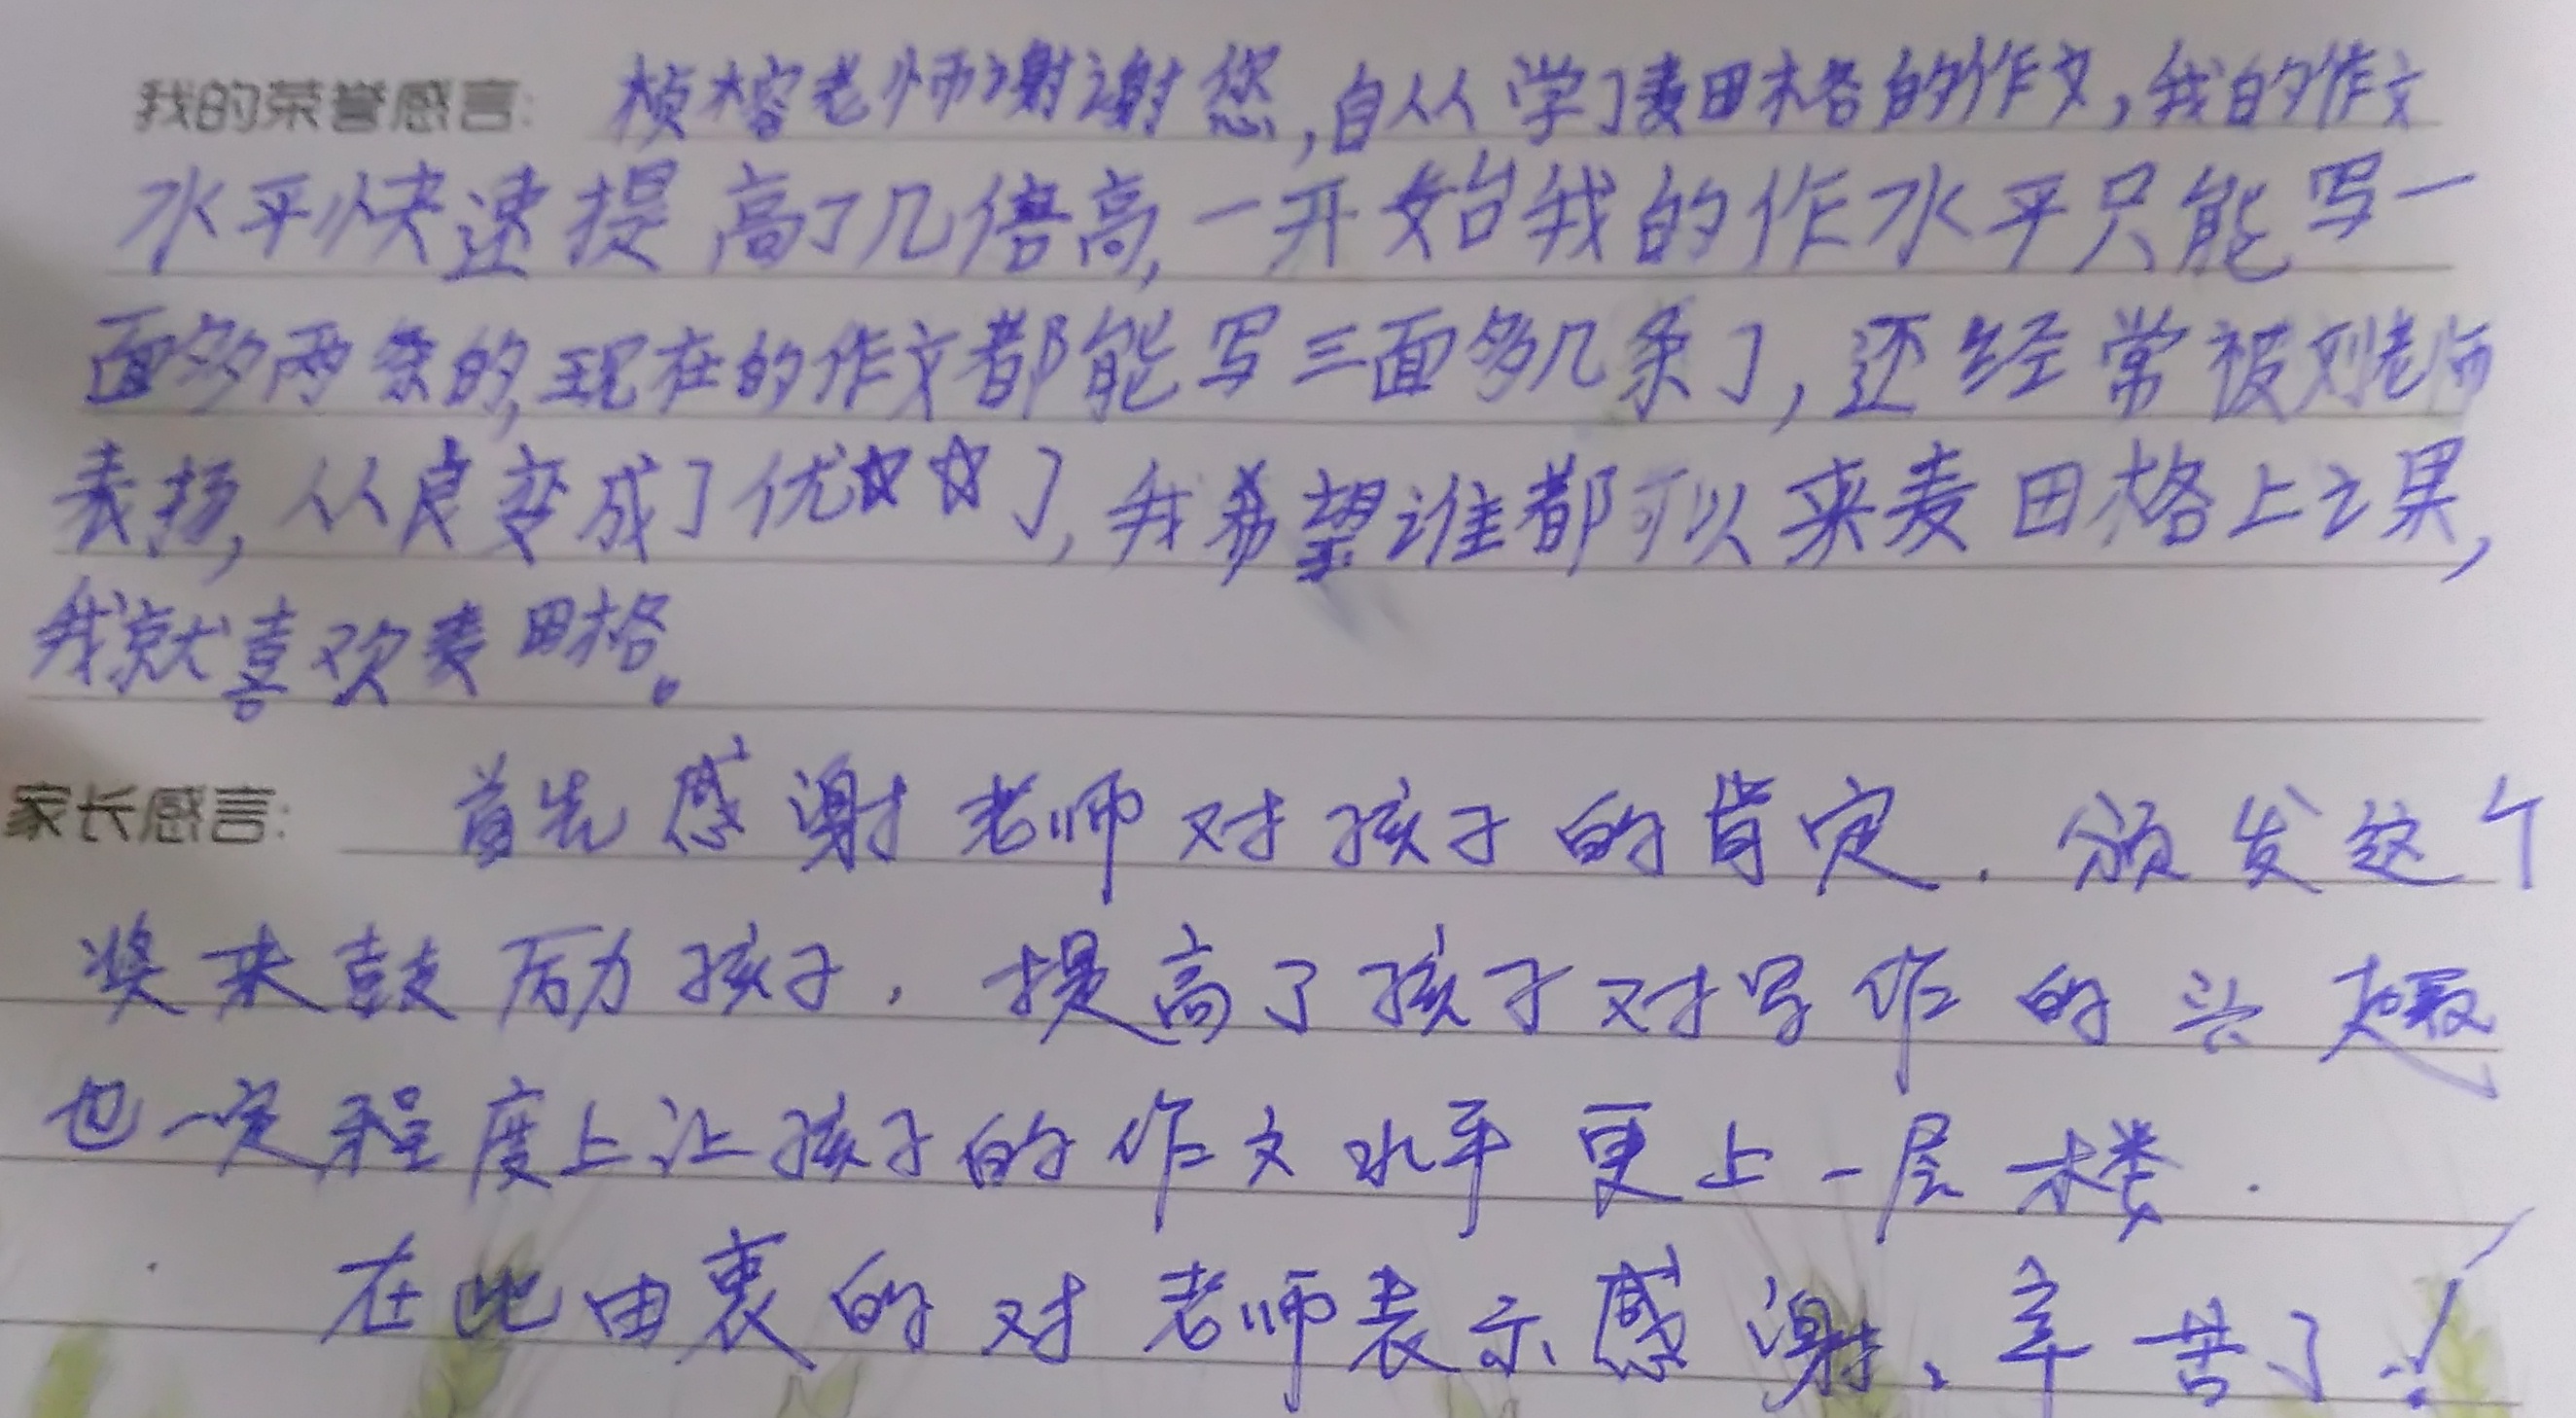 我的荣誉感言: 桢榕老师谢谢您,自从学了麦田格的作文,我的作文
水平快速提高了几倍高,一开始我的作水平只能写一
面多两条的,现在的作文都能写三面多几条了,还经常被刘老师
表扬,从良变成了优☆☆了,我希望谁都可以来麦田格上之果,
我就喜欢麦田格。
家长感言: 首先感谢老师对孩子的肯定.颁发这个
奖来鼓励孩子.提高了孩子对写作的兴趣
也一定程度上让孩子的作文水平更上一层楼.
在此由衷的对老师表示感谢、辛苦了!